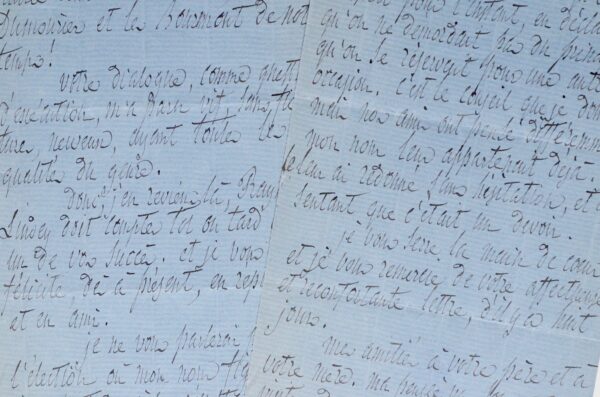 Dumouriez et le Boisrmont de not
temps!
Votre dialogue, comme questi
d'exécution, m'a paru vif, sans
ture, nerveux, ayant toutes les
qualités du genre.
Donc, j'en reviens là,
Lindey doit compter tôt ou tard
un de vos succès. et je vous
félicite, dès à présent, en
et en ami.
je ne vous parlerai
l'élection où mon nom
pour l'instant, en
qu'on ne démordait pas du
qu'on le réservait pour une autr
occasion. c'est le conseil que je
main nos amis ont pensé différemm
mon nom leur appartenait déjà.
le leur ai redonné, sans hésitation, et
sentant que c'était un devoir.
je vous serre la main de cœur
et je vous remercie de votre affectueuse
et réconfortante lettre, d'il y a huit
jours.
mes amitiés à votre père et à
votre mère. ma pensée